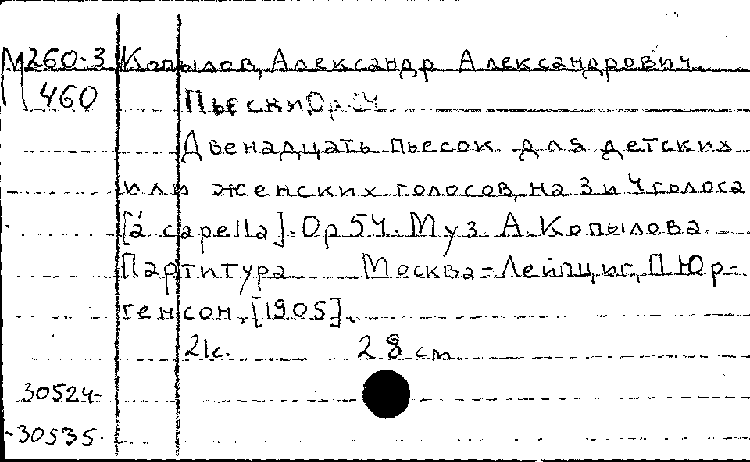 М260-3 Копылов, Александр Александрович.
460 Пьески Op 54
Двенадцать пьесок для детских
или женских голосов, на 3 и 4 голоса
[à capella]. Op 54. Муз. А. Копылова.
Партитура Москва-Лейпциг, П. Юр-
генсон, [1905].
21с. 28 cm
30524-
-30535